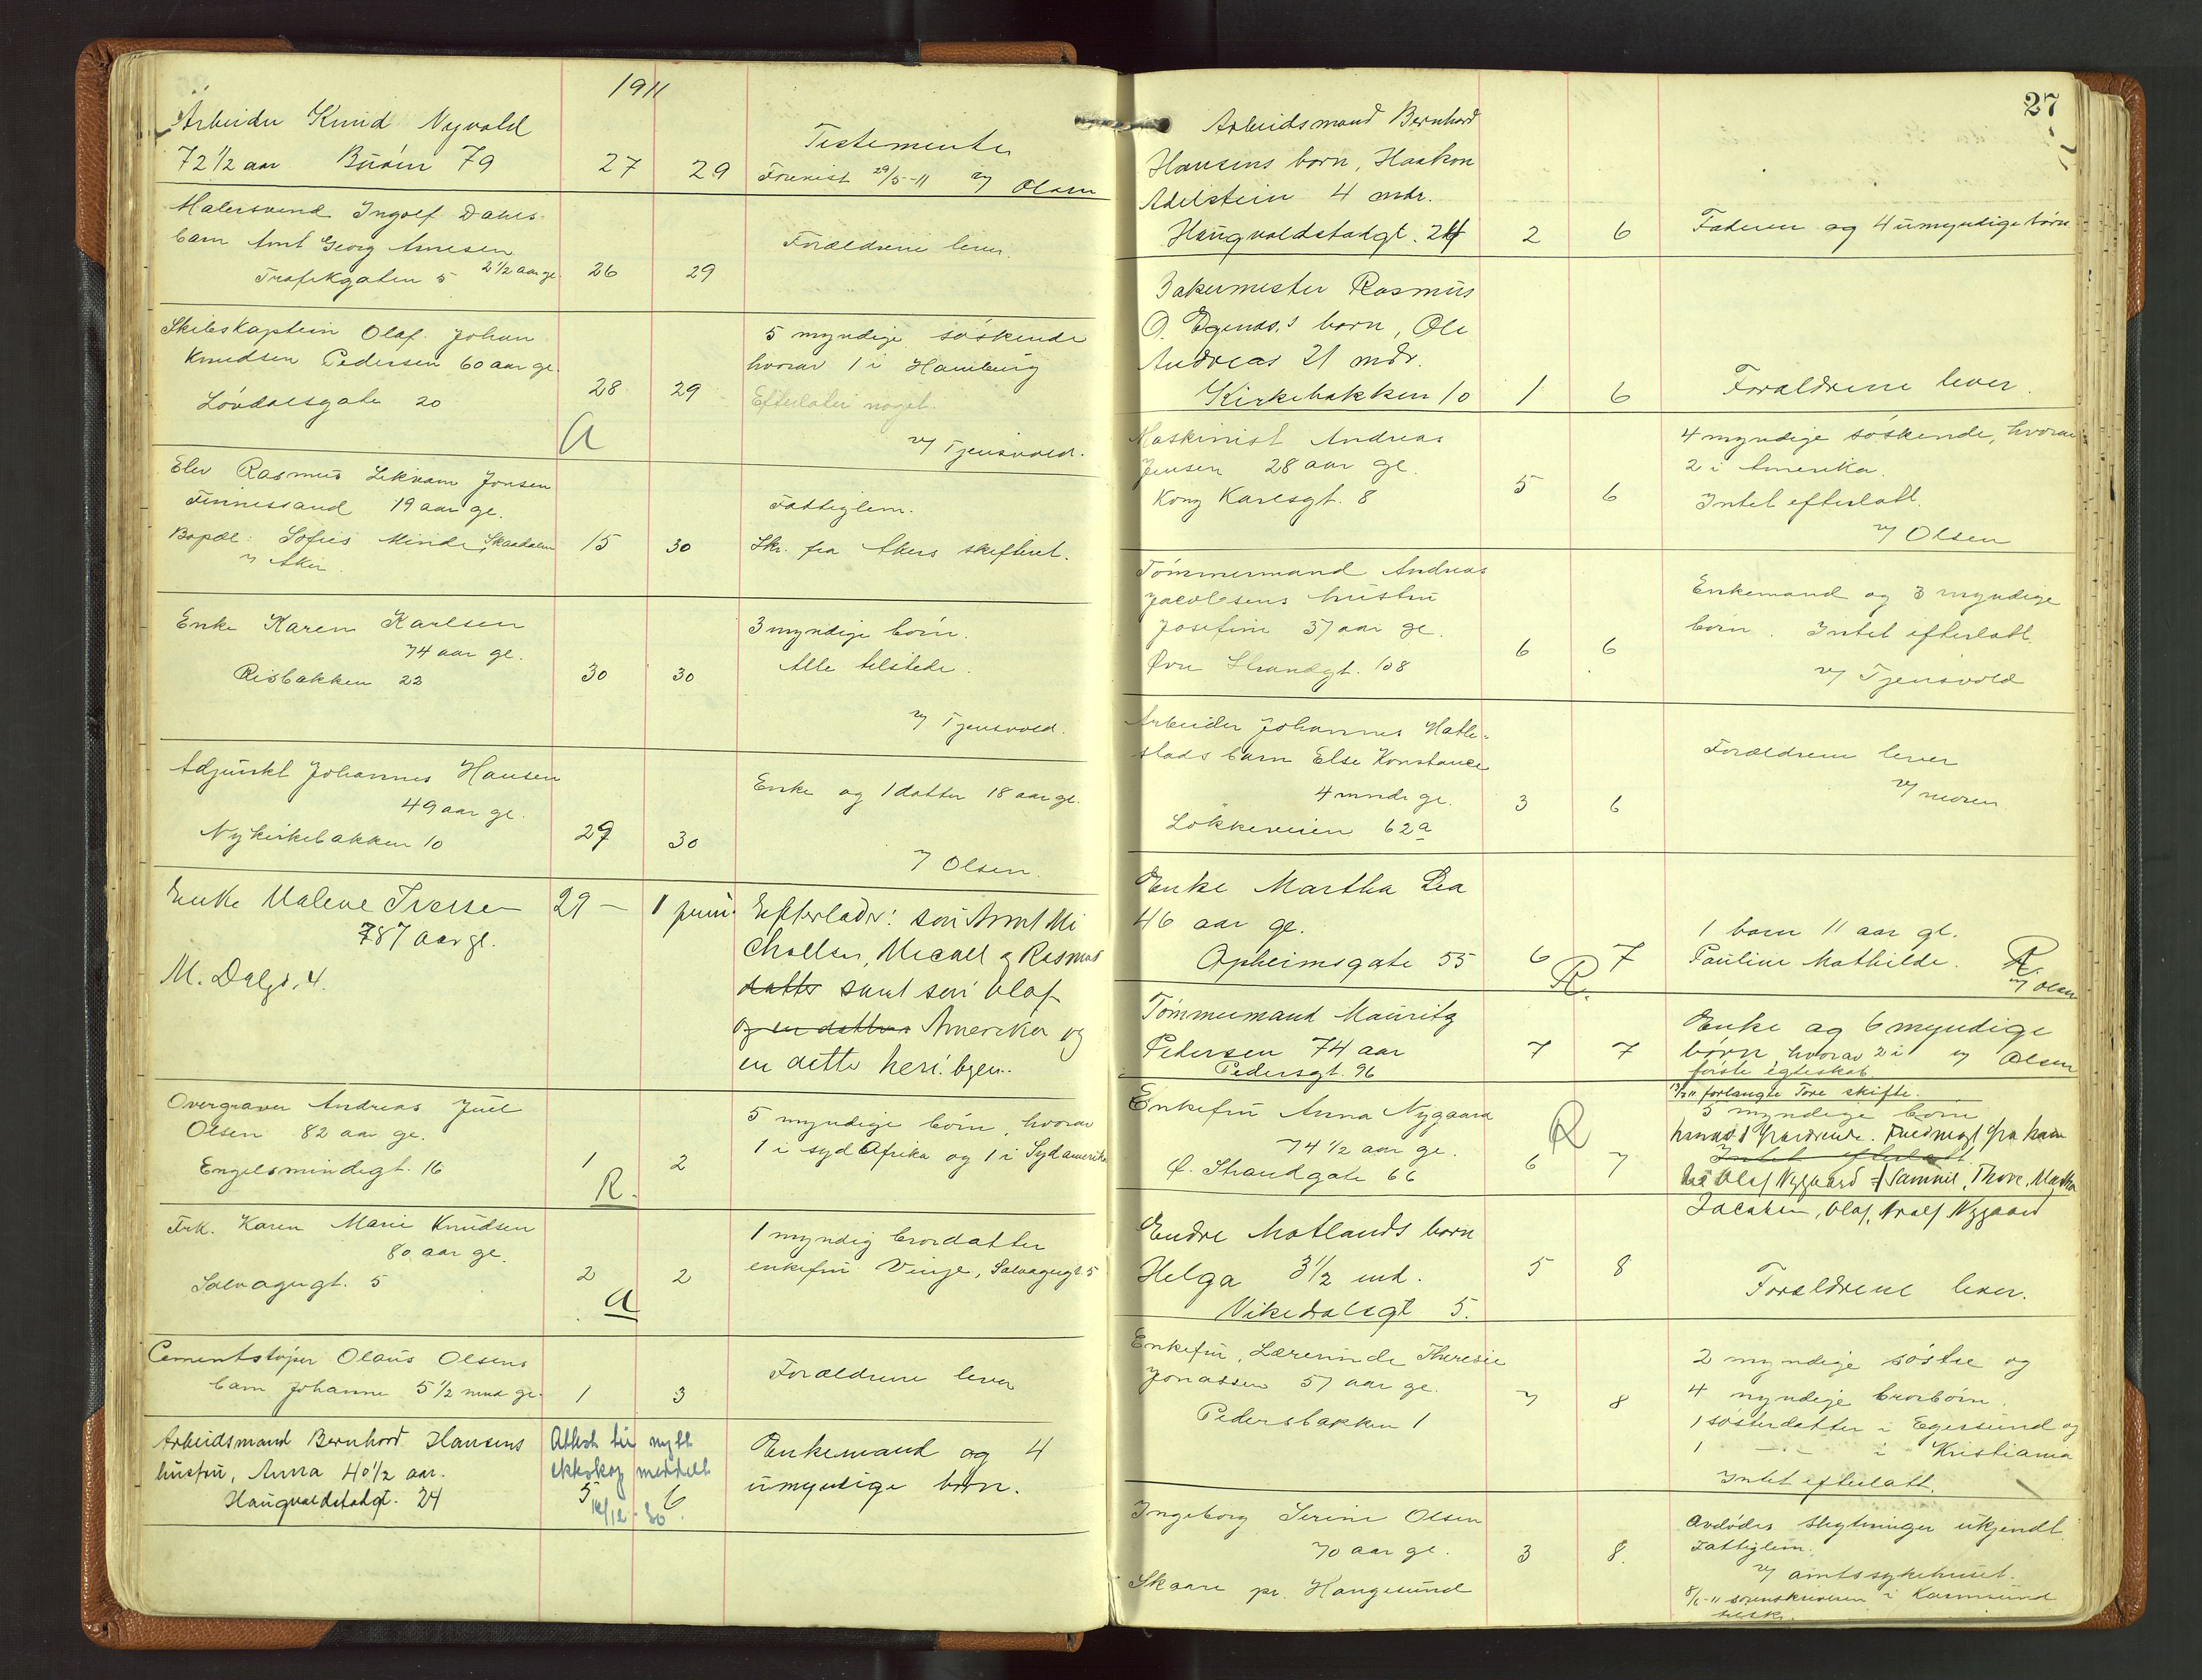 1911
Arbeider Knud Nyvold
72 1/2 aar Buøen 79 27 29 Testemente
Forevist 29/5-11 v/ Olsen
Malersvend Ingolf Dahls
barn Arnt Georg Arnesen
Trafikgaten 5 2 1/2 aar gl. 26 29 Forældrene lever.
Skibskaptein Olaf Johan
Knudsen Pedersen 60 aar gl.
Lövdalsgate 20 28 29
5 myndige söskende
hvorav 1 i Hamburg
Efterlater noget.
v/ Tjensvold.
A
Elev Rasmus Lekvam Jonsen
Finnesand 19 aar gl.
Bopæl: Sofies Minde, Skaadalen
v/ Aker. 15 30
Fattiglem.
Skr. fra Akers skifteret.
Enke Karen Karlsen
74 aar gl.
Risbakken 22 30 30
3 myndige börn.
Alle tilstede.
v/ Tjensvold.
Adjunkt Johannes Hansen
49 aar gl.
Nykirkebakken 10 29 30
Enke og 1 datter 18 aar gl.
v/ Olsen.
Enke Malene Iversen 29 — 1 juni.
787 aar gl.
M. Dalgt. 4.
Efterlader: sön Arnt Mi
chaelsen, Micael og Rasmus
datter samt sön Olaf
og en datter i Amerika og
en datter her i byen.
Overgraver Andreas Juul
Olsen 82 aar gl.
Engelsmindegt. 16 1 2
R.
5 myndige börn, hvorav
1 i syd Afrika og 1 i Sydamerika
Frk. Karen Marie Knudsen
80 aar gl.
Salvagergt. 5 2 2
A
1 myndig brordatter
enkefru Vinje, Salvagergt. 5
Cementstøper Olaus Olsens
barn Johanne 5 1/2 mnd gl. 1 3 Forældrene lever
Arbeidsmand Bernhard Hansens
hustru, Anna 40 1/2 aar.
Haugvaldstadgt. 24
Attest til nytt
ekteskap meddelt
5 6
16/12-30
Enkemand og 4
umyndige børn.
27
Arbeidsmand Bernhard
Hansens barn, Haakon
Adelstein 4 mdr.
Haugvaldstadgt. 24 2 6 Faderen og 4 umyndige børn
Bakermester Rasmus
O. Egenas's barn, Ole
Andreas 21 mdr.
Kirkebakken 10 1 6 Forældrene lever.
Maskinist Andreas
Jensen 28 aar gl.
Kong Karlsgt. 8 5 6
4 myndige söskende, hvorav
2 i Amerika.
Intet efterlatt.
v/ Olsen
Tömmermand Andreas
Jacobsens hustru
Josefine 57 aar gl.
Øvre Strandgt. 108 6 6
Enkemand og 3 myndige
börn. Intet efterlatt
v/ Tjensvold
Arbeider Johannes Hatle-
stads barn Else Konstance
4 mndr gl. 3 6
Lökkeveien 62a
Forældrene lever
v/ moren
Enke Martha Lea
46 aar gl.
Opheimsgate 55 6 7
R.
1 barn 11 aar gl.
Pauline Mathilde. R.
v/ Olsen
Tömmermand Mauritz
Pedersen 74 aar
Pedersgt. 96 7 7
Enke og 6 myndige
børn, hvorav 2 i v/ Olsen
første egteskab.
Enkefru Anna Nygaard
74 1/2 aar gl.
Ø. Strandgate 66 6 7
R
forlangte Tore skifte.
5 myndige börn
Intet efterlatt
Olaf Nygaard Samuel, Thore, Martha
Jacobsen, Olaf, Nygaard
Endre Motlands barn
Helga 3 1/2 md.
Vikedalsgt 5. 5 8 Forældrene lever.
Enkefru, Lærerinde Theresie
Jonassen 57 aar gl.
Pedersbakken 1 7 8
2 myndige söstre og
4 myndige brorbörn.
1 sösterdatter i Egersund og
1 — " — i Kristiania
Intet efterlatt.
Ingeborg Serine Olsen
70 aar gl. 3 8.
Skaare pr. Haugesund
Avdødes slegtninger ukjendt
Fattiglem.
v/ amtssykehuset.
8/6-11 sorenskriveren i Karmsund